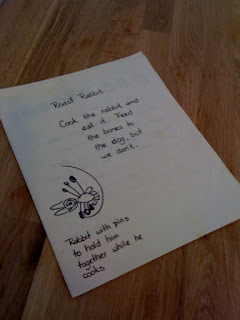 Roast Rabbit
Cook the rabbit and
eat it. Feed
the bones to
the dog, but
we don't.
Rabbit with pins
to hold him
together while he
cooks